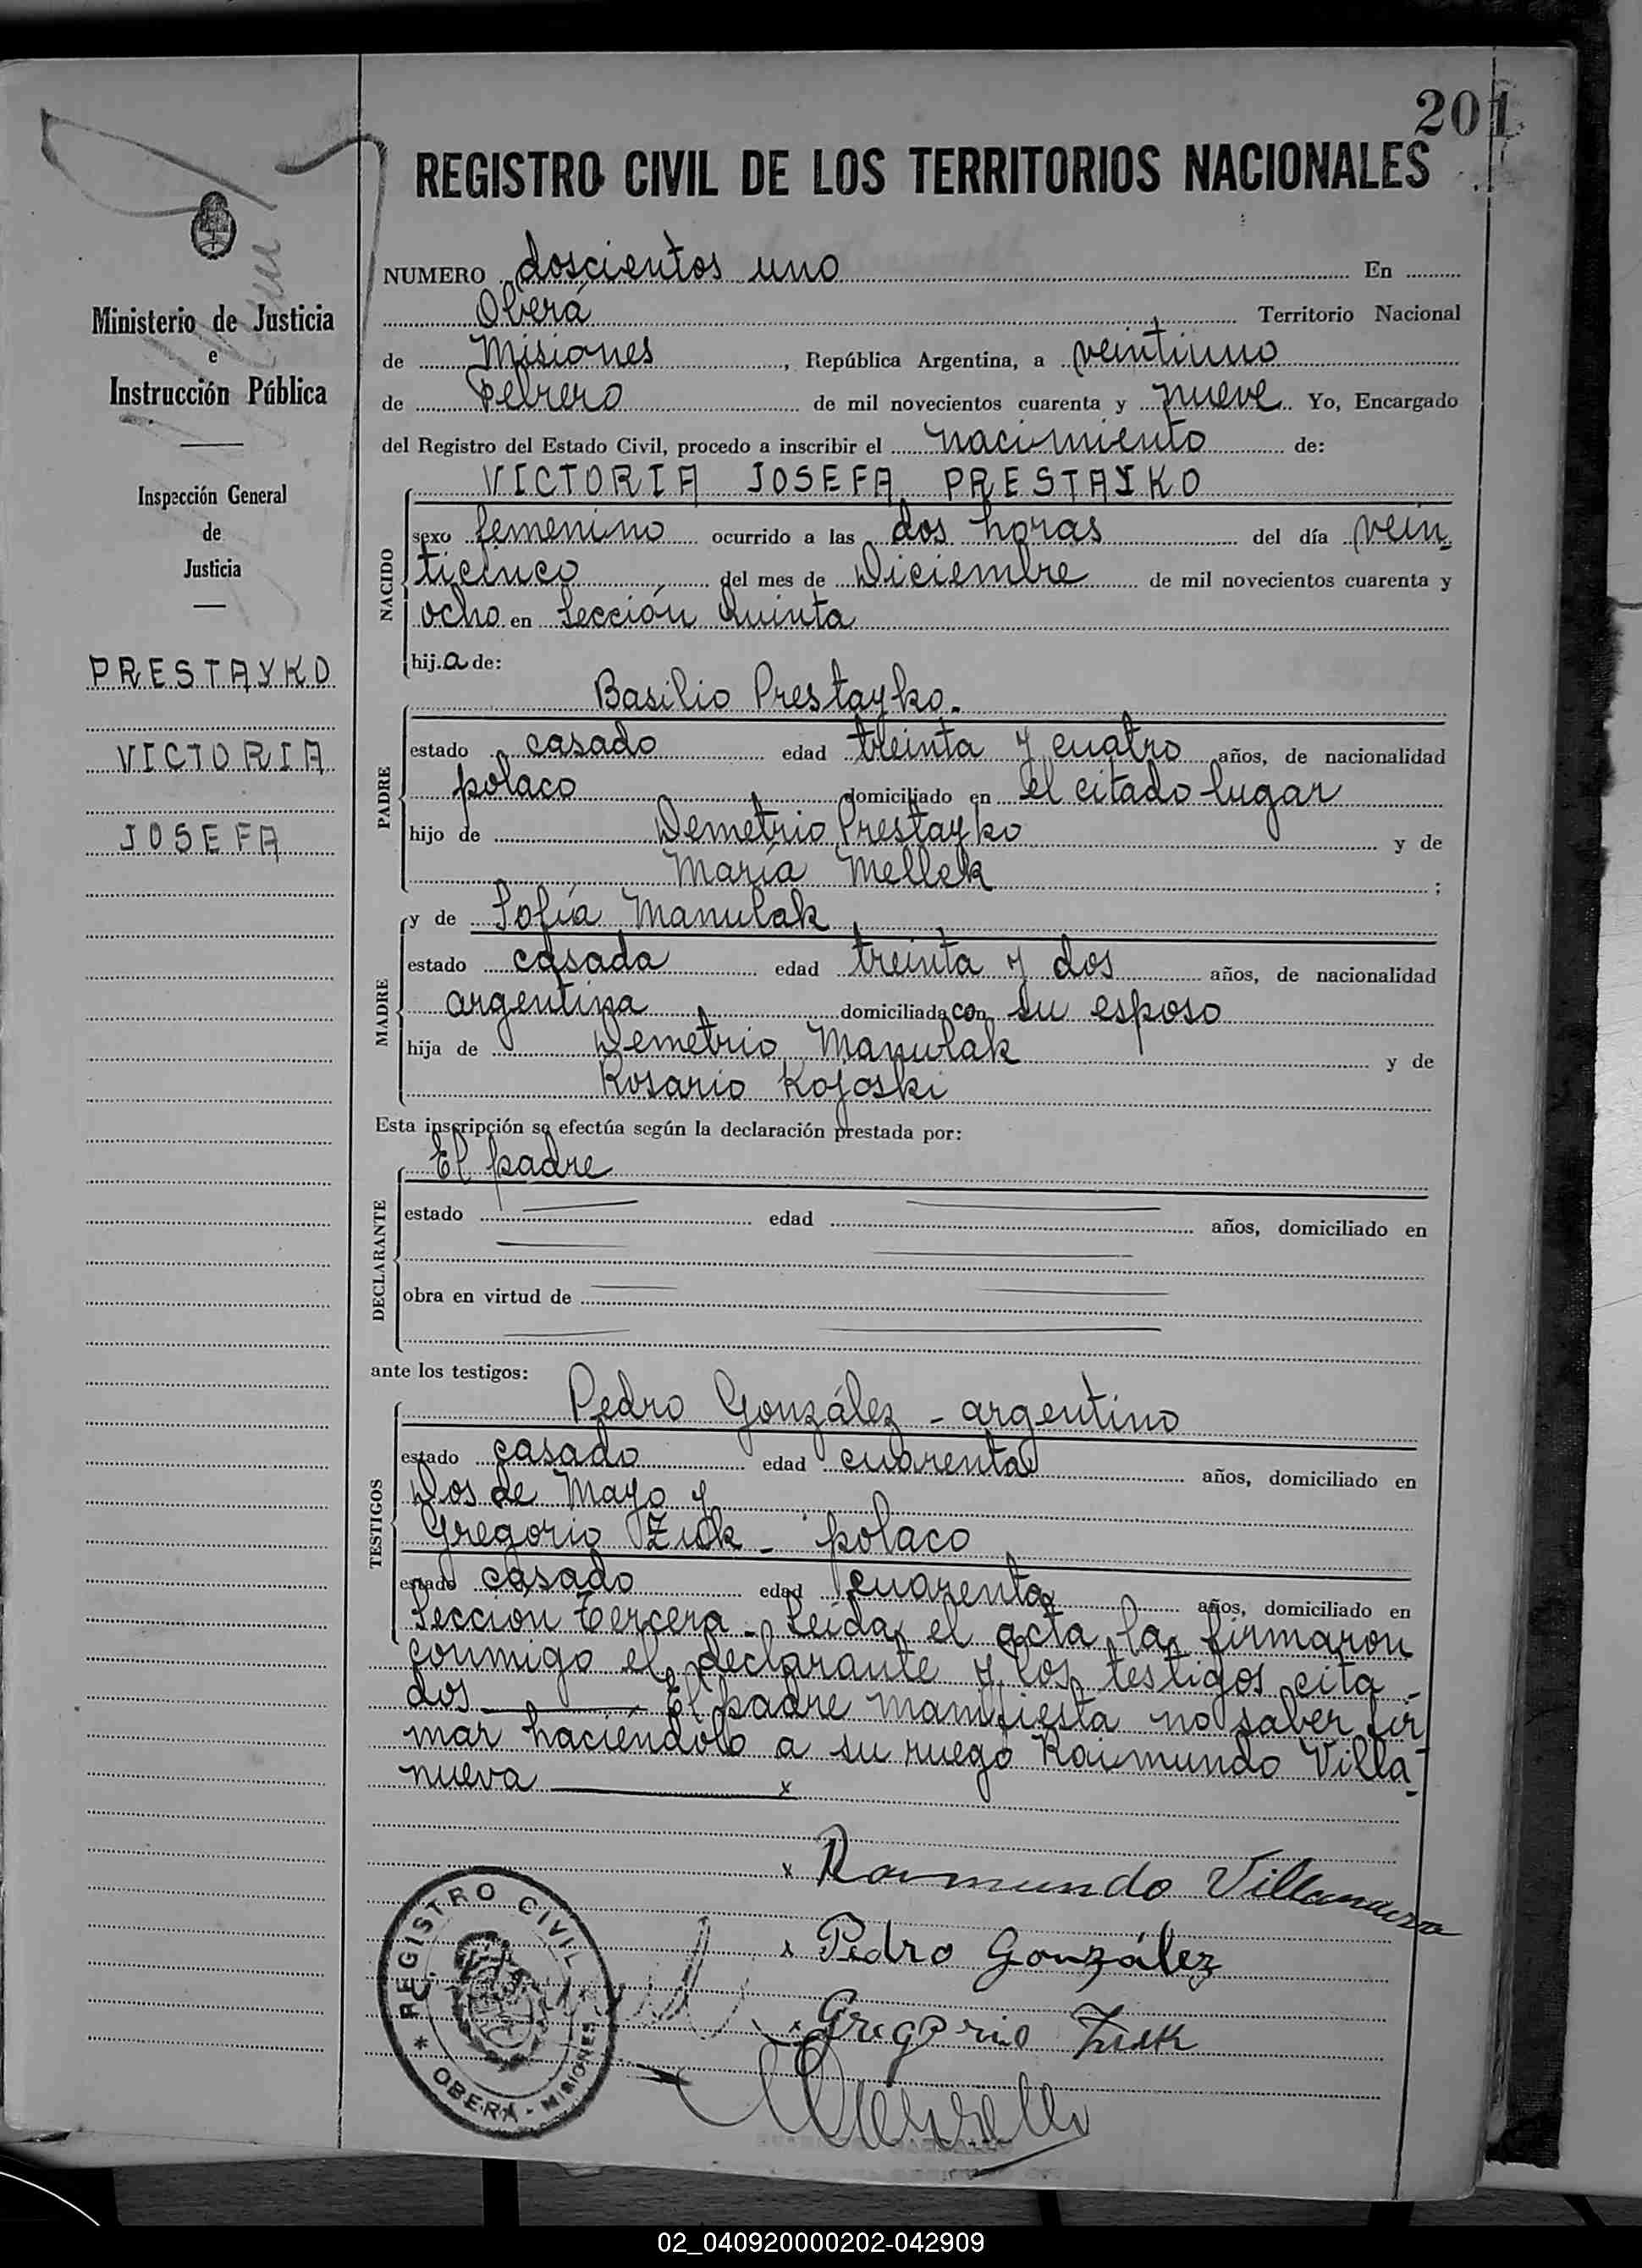 201
REGISTRO CIVIL DE LOS TERRITORIOS NACIONALES
Ministerio de Justicia
e
Instrucción Pública
Inspección General
de
Justicia
PRESTAYKO
VICTORIA
JOSEFA
NUMERO doscientos uno En
Oberá Territorio Nacional
de Misiones, República Argentina, a veintiuno
de Febrero de mil novecientos cuarenta y nueve. Yo, Encargado
del Registro del Estado Civil, procedo a inscribir el nacimiento de:
NACIDO
VICTORIA JOSEFA PRESTAYKO
sexo femenino ocurrido a las dos horas del día vein-
ticinco del mes de Diciembre de mil novecientos cuarenta y
ocho en Sección Quinta
hija de:
PADRE
Basilio Prestayko.
estado casado edad treinta y cuatro años, de nacionalidad
polaco domiciliado en el citado lugar
hijo de Demetrio Prestayko y de
María Mellek ;
MADRE
y de Sofía Manulak
estado casada edad treinta y dos años, de nacionalidad
argentina domiciliada con su esposo
hija de Demetrio Manulak y de
Rosario Kojoski
Esta inscripción se efectúa según la declaración prestada por:
DECLARANTE
El padre
estado edad años, domiciliado en
obra en virtud de
ante los testigos:
TESTIGOS
Pedro González - argentino
estado casado edad cuarenta años, domiciliado en
Dos de Mayo y
Gregorio Zuk - polaco
estado casado edad cuarenta años, domiciliado en
Sección Tercera - Leída el acta la firmaron
conmigo el declarante y los testigos cita-
dos El padre manifiesta no saber fir
mar haciéndolo a su ruego Raimundo Villa-
nueva x
x Raimundo Villanueva
x Pedro González
x Gregorio Zuk
REGISTRO CIVIL
* OBERA - MISIONES
02_040920000202-042909